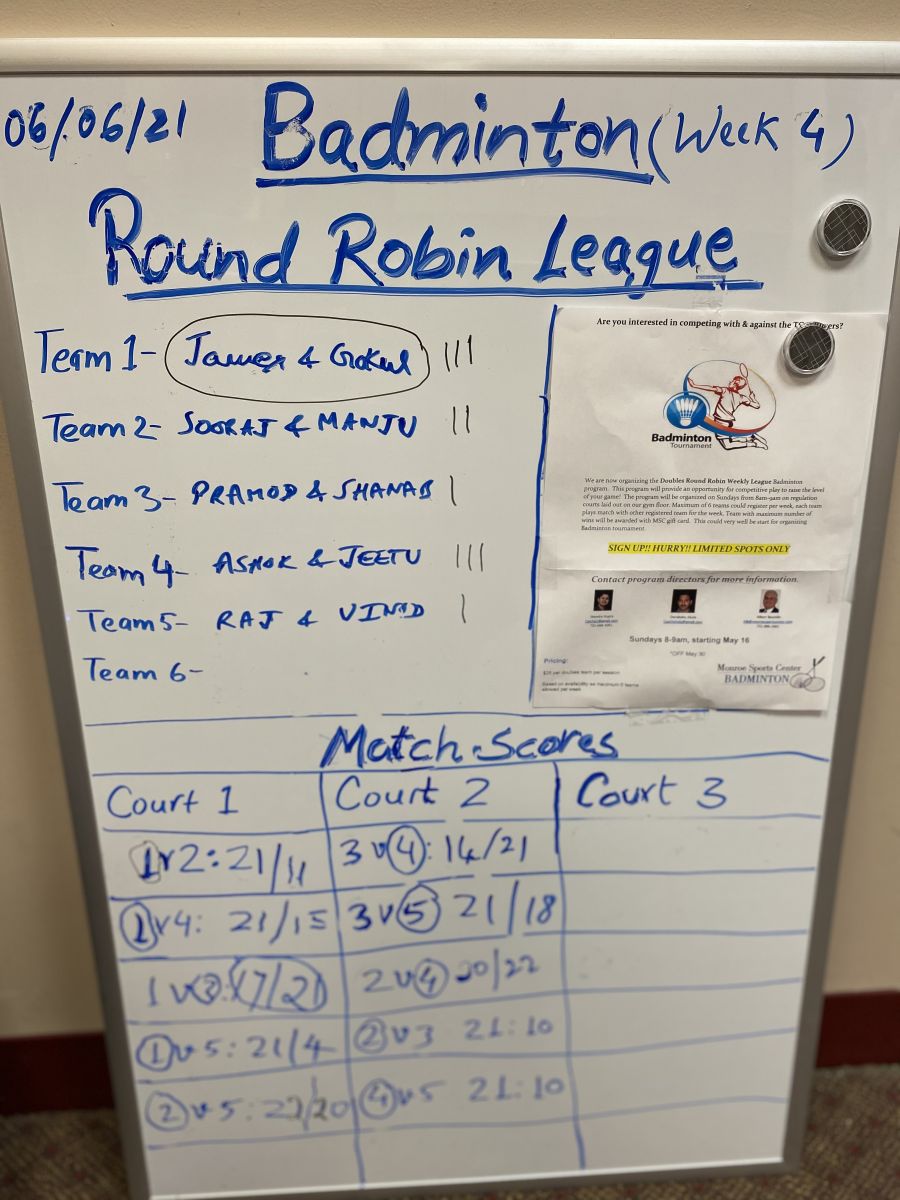 06/06/21 Badminton (Week 4)
Round Robin League
Team 1- James & Gokul |||
Team 2- SOORAJ & MANJU ||
Team 3- PRAMOD & SHANAB |
Team 4- ASHOK & JEETU |||
Team 5- RAJ & VINOD |
Team 6-
Are you interested in competing with & against the
Badminton
Tournament
We are now organizing the Doubles Round Robin Weekly League Badminton
program. This program will provide an opportunity for competitive play to raise the level
of your game! The program will be organized on Sundays from 8am-9am on regulation
courts laid out on our gym floor. Maximum of 6 teams could register per week, each team
plays match with other registered team for the week. Team with maximum number of
wins will be awarded with MSC gift card. This could very well be start for organizing
Badminton tournament.
SIGN UP!! HURRY!! LIMITED SPOTS ONLY
Contact program directors for more information.
Sundays 8-9am, starting May 16
*OFF May 30
Pricing:
$25 per doubles team per session
Based on availability as maximum 6 teams
allowed per week
Monroe Sports Center
BADMINTON
Match Scores
Court 1 Court 2 Court 3
1v2: 21/11 3v4: 14/21
1v4: 21/15 3v5 21/18
1v3: 17/21 2v4 20/22
1v5: 21/4 2v3 21:10
2v5: 22/20 4v5 21:10